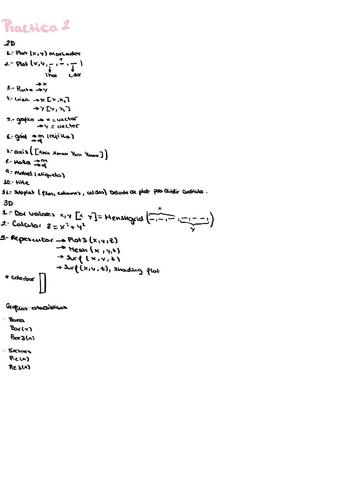 Practica 2
2D
1.- Plot (x,y) marcador
2.- Plot (x,y, -, -, -)
color
3.- Punto → x
→ y
4.- Linea → x [x, x2]
→ y [y, y2]
5.- grafica → x = vector
→ y = vector
6.- grid → on (rejilla)
→ off
7.- axis ([xmin xmax ymin ymax])
8.- Hold → on
→ off
9.- xlabel (etiqueta)
10.- title
11.- Subplot (filas, columnas, celdas) Delante de plot
3D
1.- Dar valores x,y [x y] = Meshgrid (-,-,-,-,---,)
x
y
2.- Calcular z = x² + y²
3.- Representar → Plot3 (x,y,z)
→ Mesh (x,y,z)
→ Surf (x,y,z)
→ Surf (x,y,z), shading flat
+ colorbar
Graficas estadisticas
- Barra
Bar(x)
Bar3(x)
- Sectores
Pie(x)
Pie3(x)